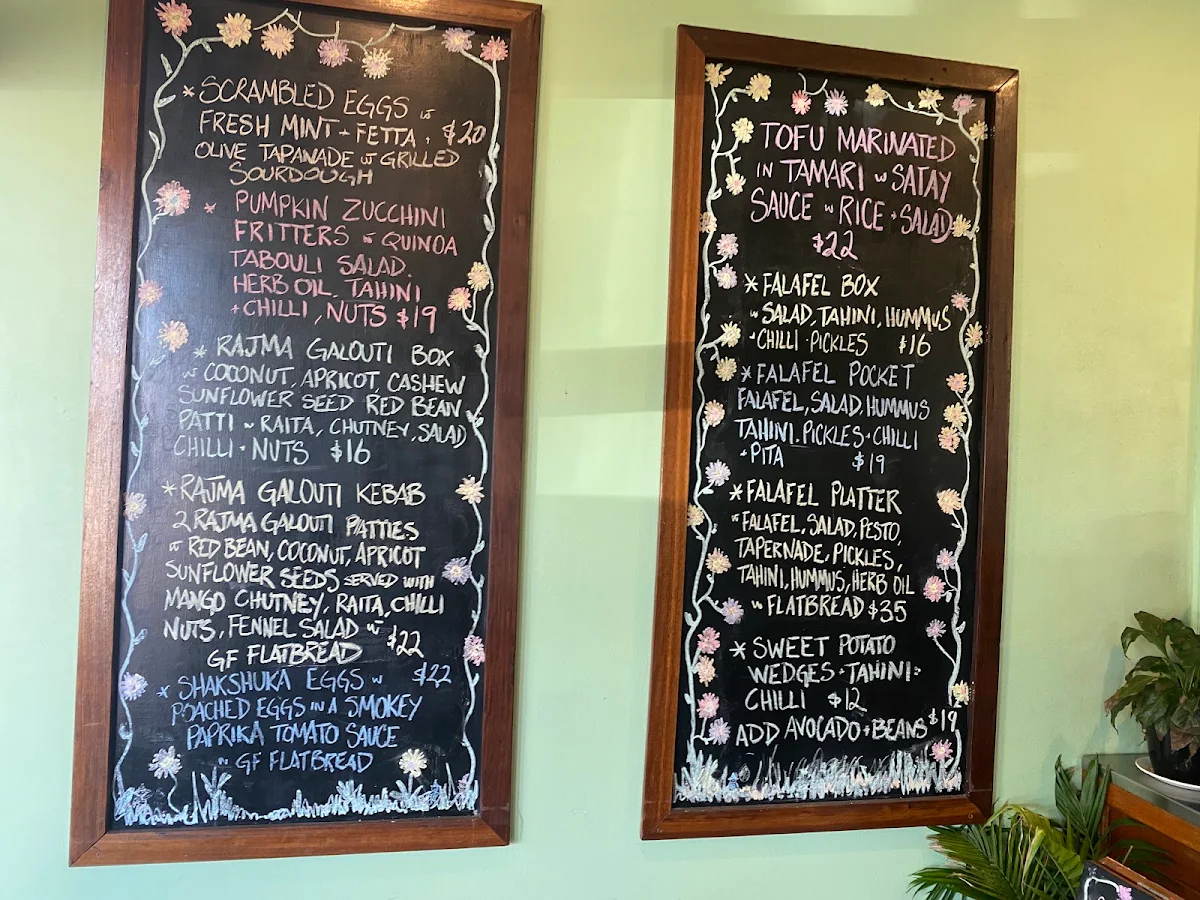 * SCRAMBLED EGGS w
FRESH MINT + FETTA, $20
OLIVE TAPANADE w GRILLED
SOURDOUGH
* PUMPKIN ZUCCHINI
FRITTERS w QUINOA
TABOULI SALAD.
HERB OIL, TAHINI
+ CHILLI, NUTS $19
* RAJMA GALOUTI BOX
w COCONUT, APRICOT, CASHEW
SUNFLOWER SEED RED BEAN
PATTI w RAITA, CHUTNEY, SALAD
CHILLI + NUTS $16
* RAJMA GALOUTI KEBAB
2 RAJMA GALOUTI PATTIES
w RED BEAN, COCONUT, APRICOT
SUNFLOWER SEEDS SERVED WITH
MANGO CHUTNEY, RAITA, CHILLI
NUTS, FENNEL SALAD w $22
GF FLATBREAD
* SHAKSHUKA EGGS w $22
POACHED EGGS IN A SMOKEY
PAPRIKA TOMATO SAUCE
w GF FLATBREAD
TOFU MARINATED
IN TAMARI w SATAY
SAUCE w RICE + SALAD
$22
* FALAFEL BOX
w SALAD, TAHINI, HUMMUS
+ CHILLI + PICKLES $16
* FALAFEL POCKET
FALAFEL, SALAD, HUMMUS
TAHINI. PICKLES + CHILLI
+ PITA $19
* FALAFEL PLATTER
w FALAFEL, SALAD, PESTO,
TAPERNADE, PICKLES,
TAHINI, HUMMUS, HERB OIL
w FLATBREAD $35
* SWEET POTATO
WEDGES + TAHINI +
CHILLI $12
ADD AVOCADO + BEANS $19